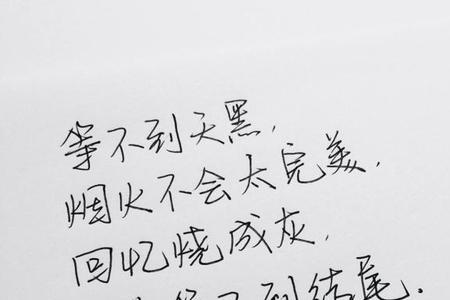 等不到天黑,
烟火不会太完美,
回忆烧成灰,
不到结尾.